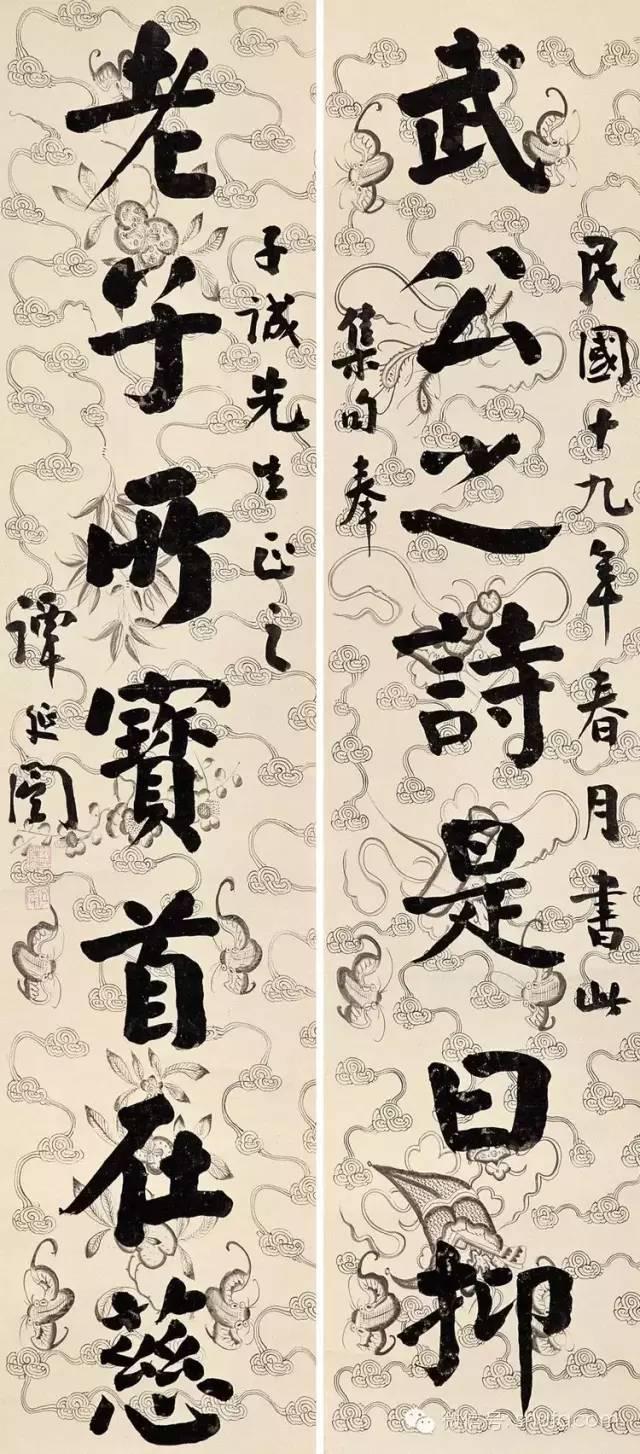 民國十九年春月書此
武公之詩是曰抑
集句奉
子誠先生正之
老子所寶首在慈
譚延闓
微信号: shufacom